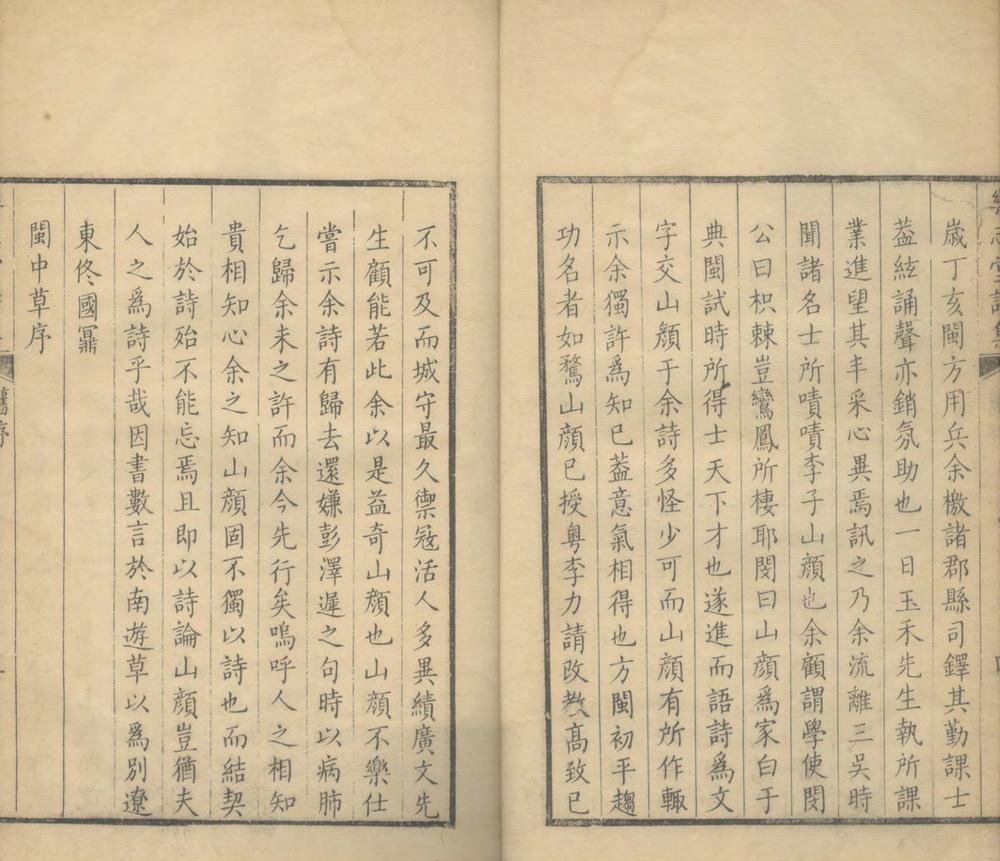 歲丁亥閩方用兵余檄諸郡縣司鐸其勤課士
葢絃誦聲亦銷氛助也一日玉禾先生執所課
業進望其丰采心異焉訊之乃余流離三吳時
聞諸名士所嘖嘖李子山顏也余顧謂學使閔
公曰枳棘豈鸞鳳所棲耶閔曰山顏爲家白于
典閩試時所得士天下才也遂進而語詩爲文
字交山顏于余詩多怪少可而山顏有所作輒
示余獨許爲知已葢意氣相得也方閩初平趨
功名者如騖山顏已授粵李力請改教高致已
不可及而城守最久禦冦活人多異績廣文先
生顧能若此余以是益奇山顏也山顏不樂仕
嘗示余詩有歸去還嫌彭澤遲之句時以病肺
乞歸余未之許而余今先行矣嗚呼人之相知
貴相知心余之知山顏固不獨以詩也而結契
始於詩殆不能忘焉且即以詩論山顏豈猶夫
人之爲詩乎哉因書數言於南遊草以爲別遼
東佟國鼐
閩中草序
舊序